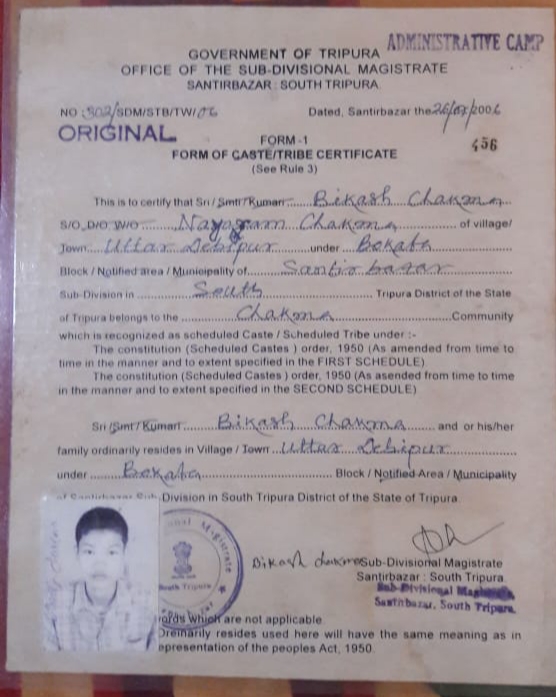 ADMINISTRATIVE CAMP
GOVERNMENT OF TRIPURA
OFFICE OF THE SUB-DIVISIONAL MAGISTRATE
SANTIRBAZAR : SOUTH TRIPURA
NO :302/SDM/STB/TW/06 Dated, Santirbazar the 26/07/2006
ORIGINAL
FORM-1 456
FORM OF CASTE/TRIBE CERTIFICATE
(See Rule 3)
This is to certify that Sri / Smti / Kumari Bikash Chakma
S/O, D/O W/O Nayagram Chakma of village/
Town Uttar Debipur under Bokafa
Block / Notified area / Municipality of Santirbazar
Sub-Division in South Tripura District of the State
of Tripura belongs to the Chakma Community
which is recognized as scheduled Caste / Scheduled Tribe under :-
The constitution (Scheduled Castes ) order, 1950 (As amended from time to
time in the manner and to extent specified in the FIRST SCHEDULE)
The constitution (Scheduled Castes ) order, 1950 (As asended from time to
in the manner and to extent specified in the SECOND SCHEDULE)
Sri /Smt / Kumari Bikash Chakma and or his/her
family ordinarily resides in Village / Town Uttar Debipur
under Bokafa Block / Notified Area / Municipality
of Santirbazar Sub-Division in South Tripura District of the State of Tripura.
Bikash chakma Sub-Divisional Magistrate
Santirbazar : South Tripura.
Sub-Divisional Magistrate
Santirbazar, South Tripura.
South Tripura
words which are not applicable.
Ordinarily resides used here will have the same meaning as in
epresentation of the peoples Act, 1950.